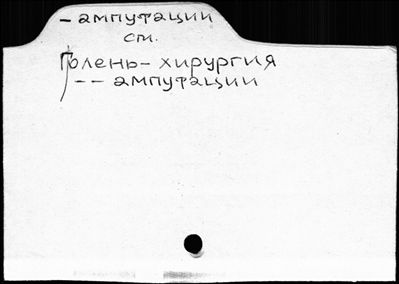 - ампутации
см.
Голень - хирургия
- - ампутации